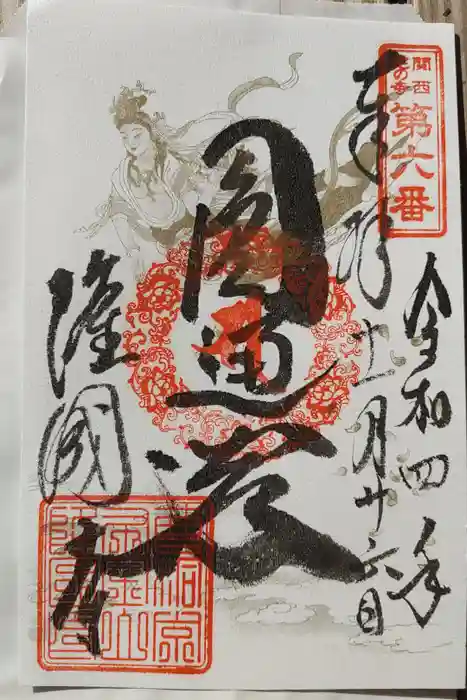 関西
花の寺
第六番
奉拝
令和四年
十一月十六日
圓通
隆國寺